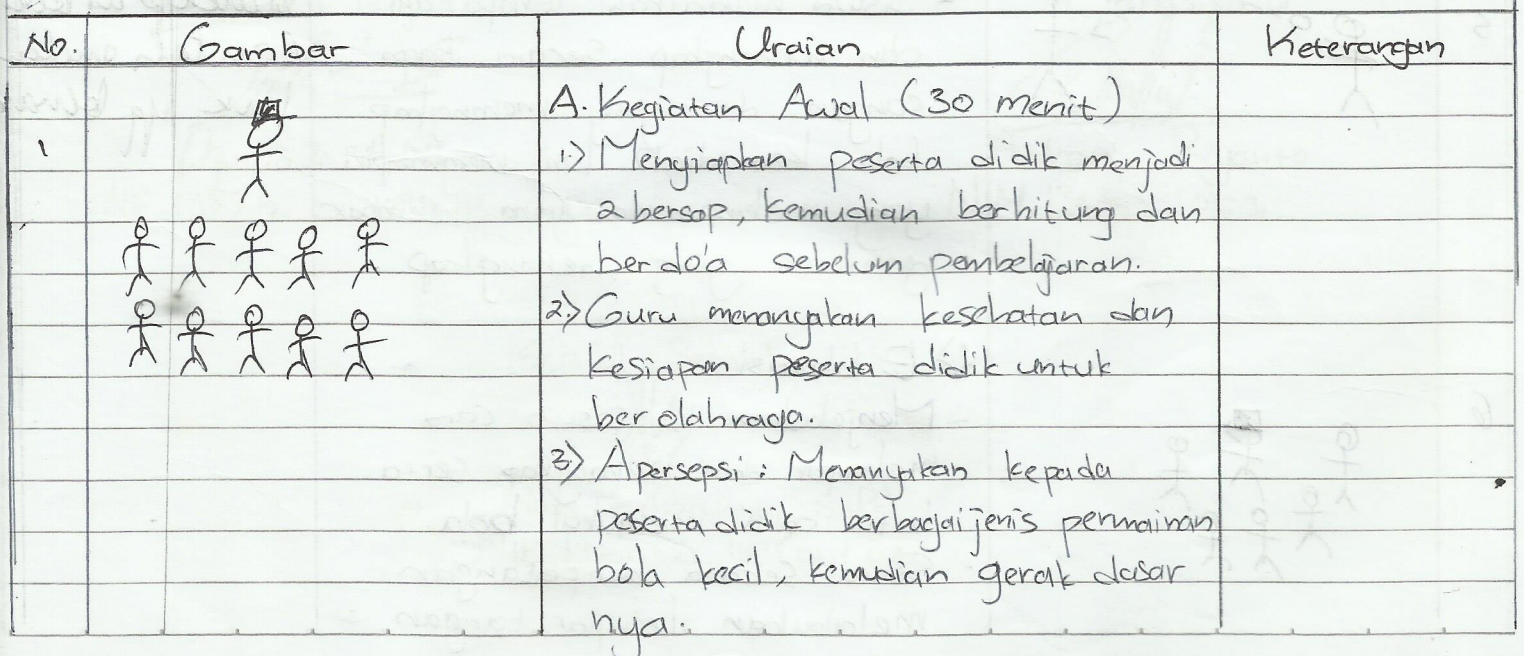 No. Gambar Uraian Keterangan
A. Kegiatan Awal (30 menit)
1 1.) Menyiapkan peserta didik menjadi
2 bersap, kemudian berhitung dan
berdo'a sebelum pembelajaran.
2.) Guru menanyakan kesehatan dan
kesiapan peserta didik untuk
berolahraga.
3.) Apersepsi : Menanyakan kepada
peserta didik berbagai jenis permainan
bola kecil, kemudian gerak dasar
nya.